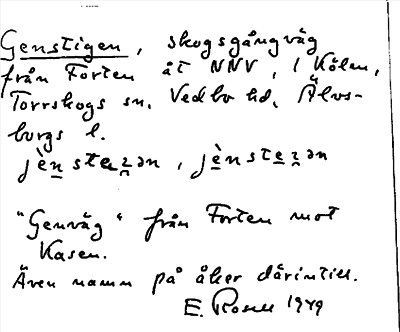 Genstigen, skogsgångväg
från Forten åt NNV, i Kölen,
Torrskogs sn. Vedbo hd, Älvs-
borgs l.
jènsteɀən, jènsteɀən
"Genväg" från Forten mot
Kasen.
Även namn på åker därintill.
E. Rosell 1949